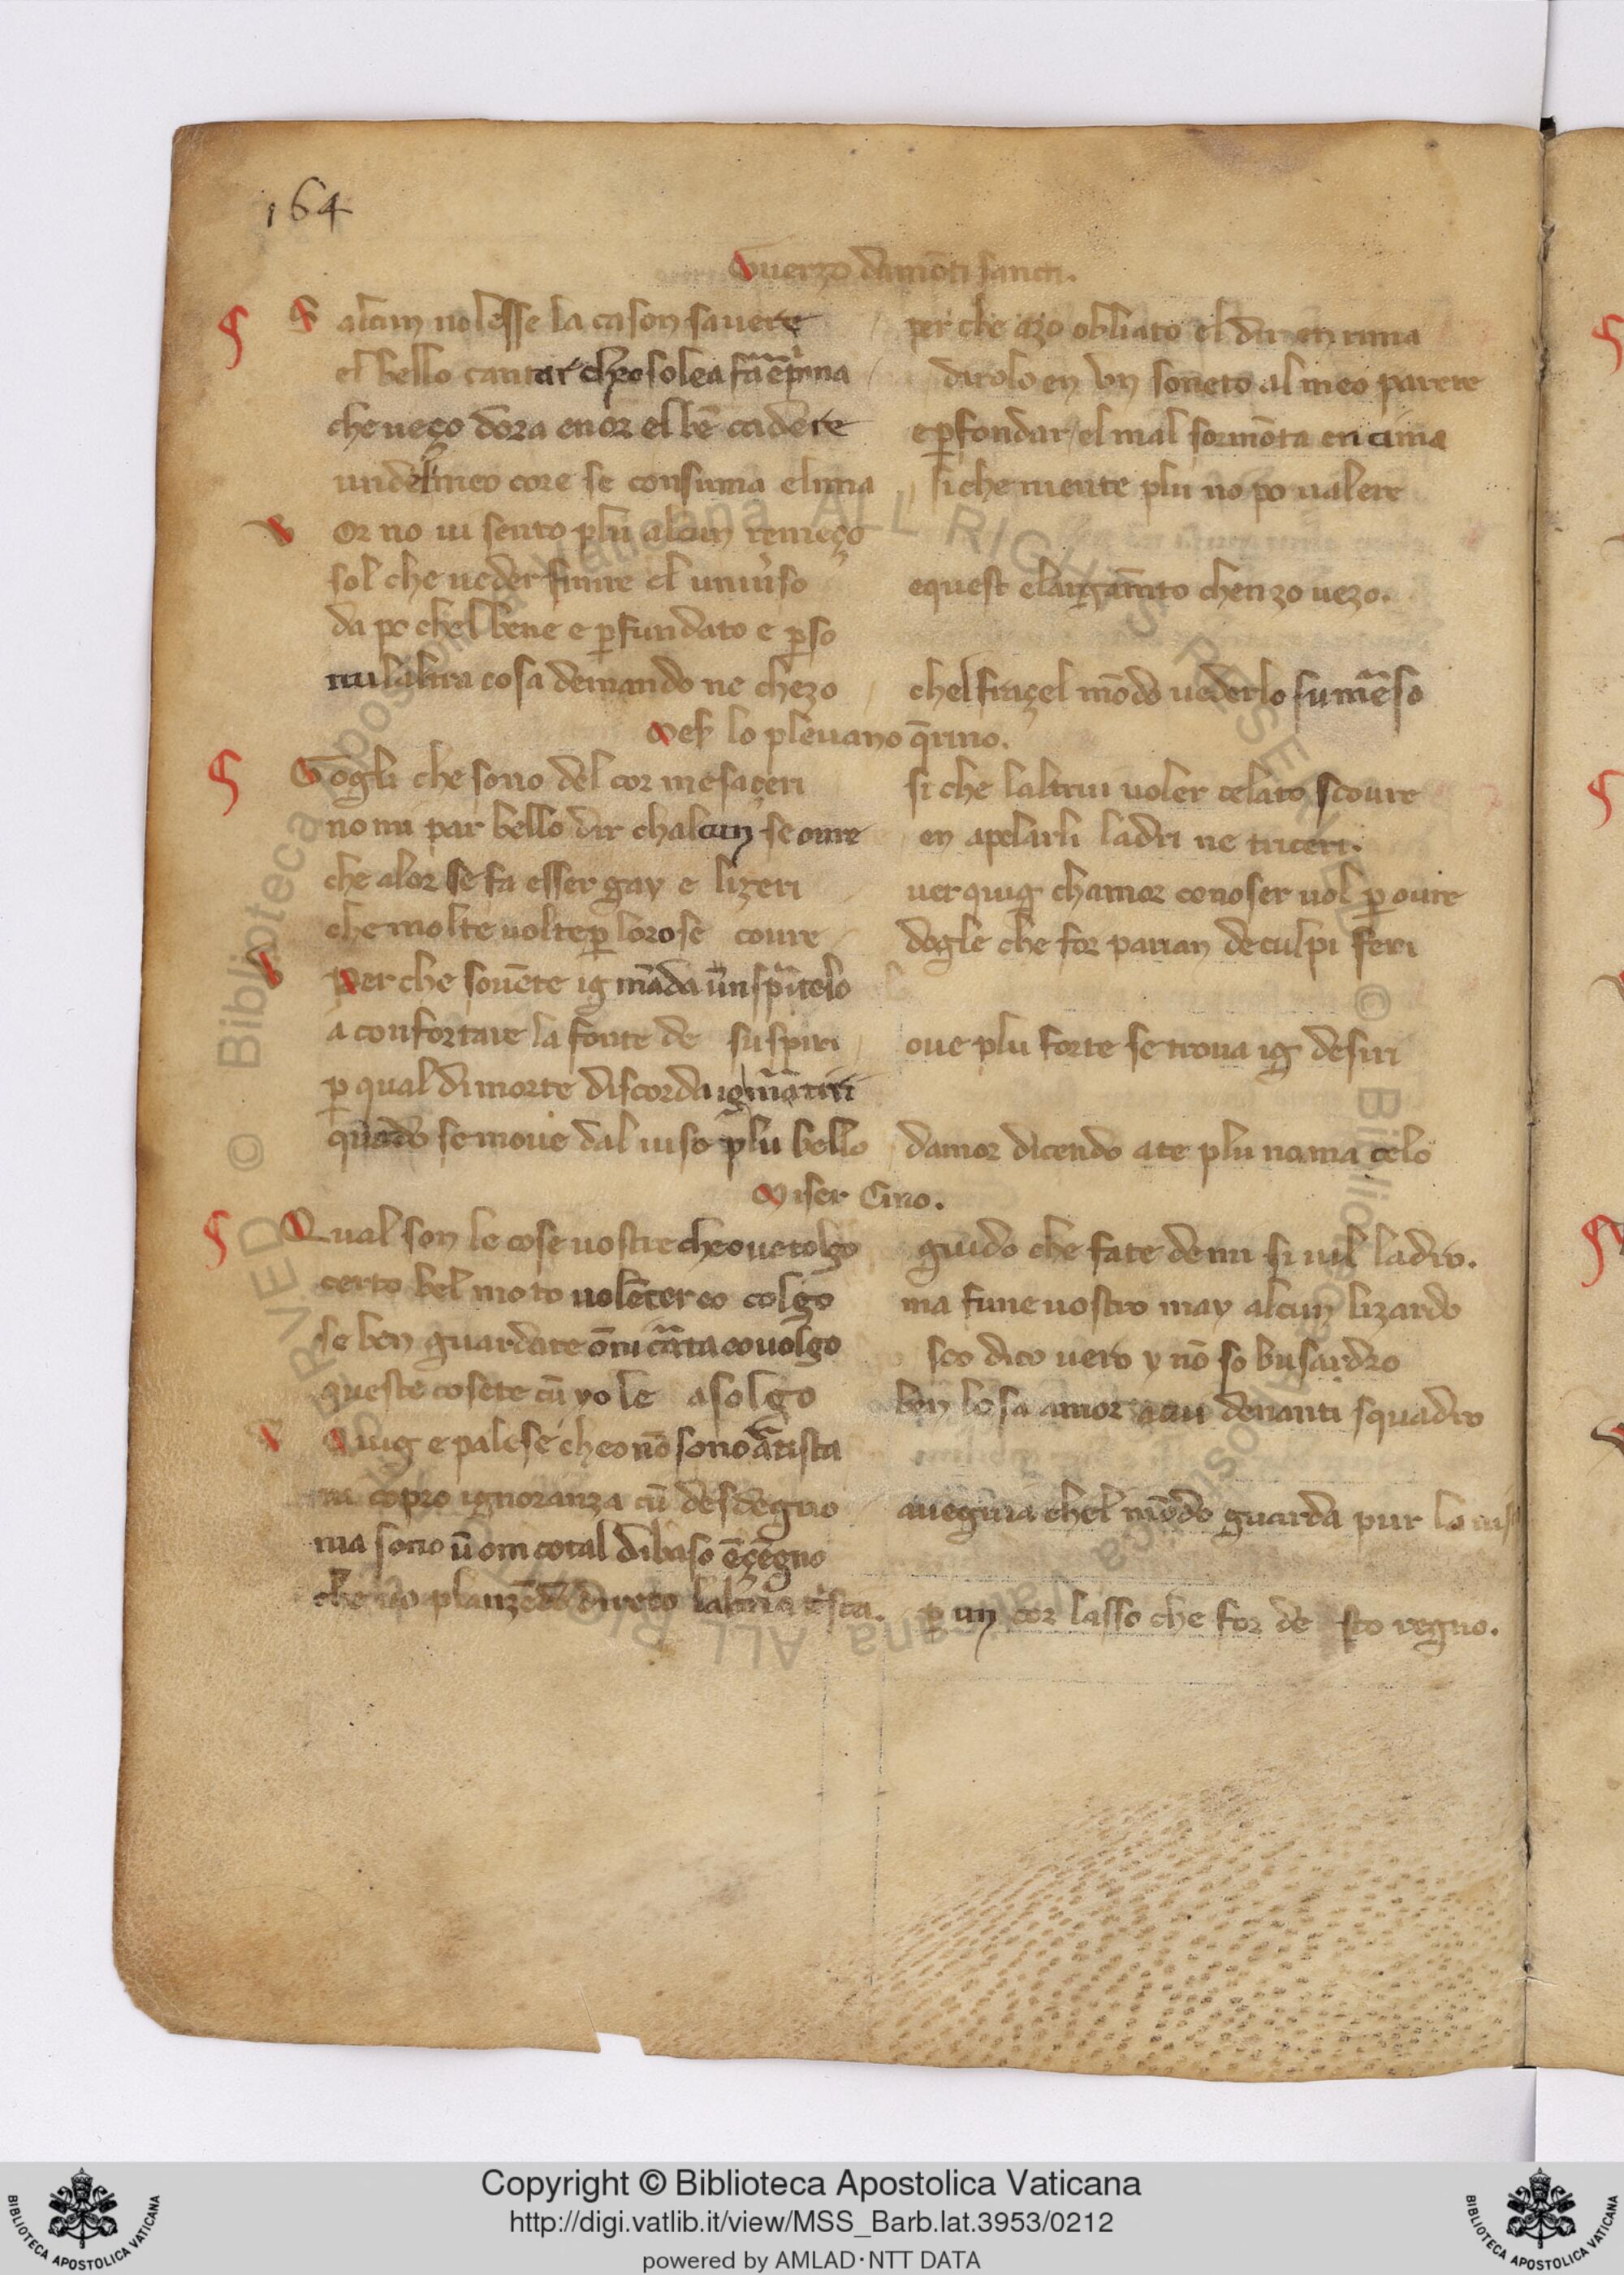 164
Guerzo damōti sancti.
S alcun nolesse la cason sauere per che azo obliato el dir en rima
el bello cantar cheo solea fā ēp̄ma dirolo en vn soneto al meo parere
che ueço dora enōr el bē cadere e ꝑfondar el mal sormōta en cima
undel meo core se consuma elima si che niente plu no po ualere
Or no ui sento plu alcun remeço
sol che ueder finire el uniu̓so equest elargamēto chenzo uezo.
da po chel bene e ꝑfundato e ꝑso
nulaltra cosa demando ne chezo chel fraçel mōdo uederlo sumēso
Meß lo pleuano q̄rino.
Gogli che sono del cor mesaçeri si che laltrui uoler celato scoure
no mi par bello dir chalcun se oure en apelarli ladri ne triceri.
che alor se fa esser gay e lizeri uer quig chamor conoser uol ꝑ oure
che molte uolte ꝑ loro se coure degle che for parian de culpi feri
Per che souēte ig māda ūn spiritelo
a confortare la fonte de suspiri oue plu forte se troua ig desiri
ꝑ qual di morte discorda ig mātiri
quādo se moue dal uiso plu bello damor dicendo ate plu noma celo
Miser Cino.
Qual son le cose uostre cheo ue tolgo guido che fate de mi si uil ladro.
certo bel moto uolētier eo colgo ma fune uostro may alcun lizardo
se ben guardate ōni cārta eo uolgo seo dico uero y nō so busardro
queste cosete cū yo le asolgo ben lo sa amor acui denanti squadro
Quig e palese cheo nō sono artista
ni copro ignoranza cū desdegno auegnia chel mōdo guarda pur la uis
ma sono ūom cotal di baso ēçegno
che uo planzēdo direto laltrīa t̓sta. ꝑ un cor lasso che for de sto regno.
Copyright © Biblioteca Apostolica Vaticana
http://digi.vatlib.it/view/MSS_Barb.lat.3953/0212
powered by AMLAD·NTT DATA
BIBLIOTECA APOSTOLICA VATICANA
BIBLIOTECA APOSTOLICA VATICANA